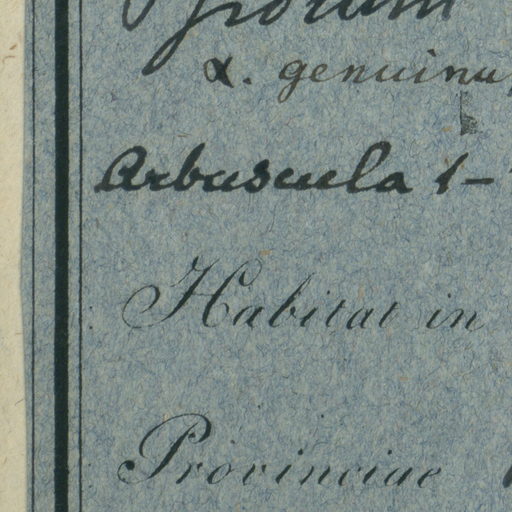 α. genuinu
Arbuscula 1-
Habitat in
Provinciae